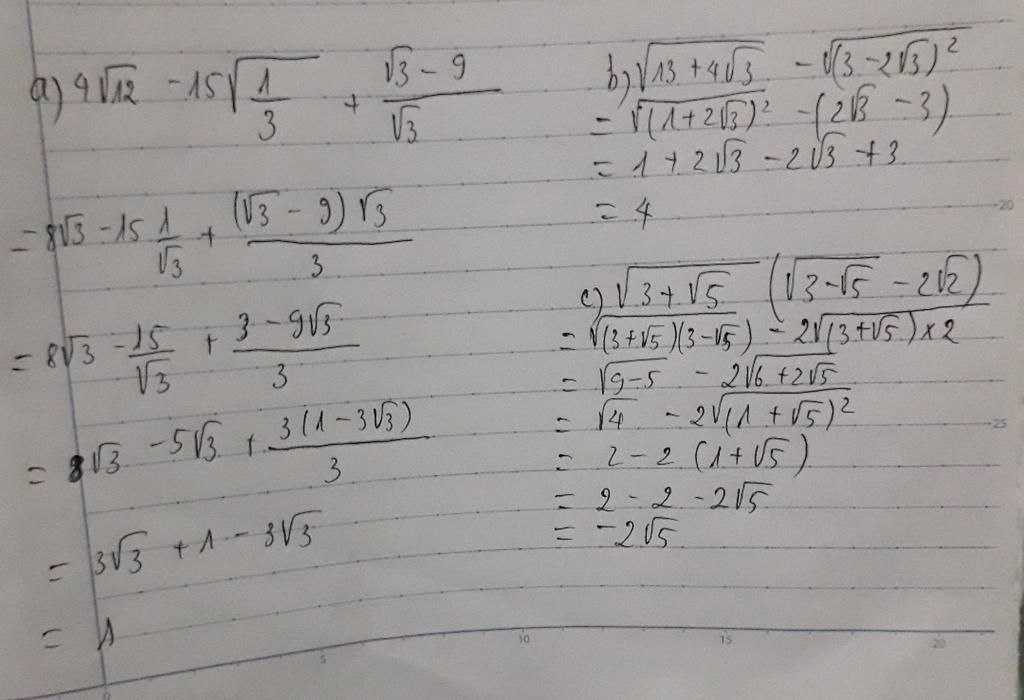 a) 4√12 - 15√(1/3) + (√3 - 9)/√3
= 8√3 - 15 1/√3 + ((√3 - 9)√3)/3
= 8√3 - 15/√3 + (3 - 9√3)/3
= 8√3 - 5√3 + (3(1 - 3√3))/3
= 3√3 + 1 - 3√3
= 1
b) √(13 + 4√3) - √((3 - 2√3)²)
= √((1 + 2√3)²) - (2√3 - 3)
= 1 + 2√3 - 2√3 + 3
= 4
c) √(3 + √5) (√(3 - √5) - 2√2)
= √((3 + √5)(3 - √5)) - 2√((3 + √5) × 2)
= √(9 - 5) - 2√(6 + 2√5)
= √4 - 2√((1 + √5)²)
= 2 - 2 (1 + √5)
= 2 - 2 - 2√5
= -2√5
20
25
0 5 10 15 20